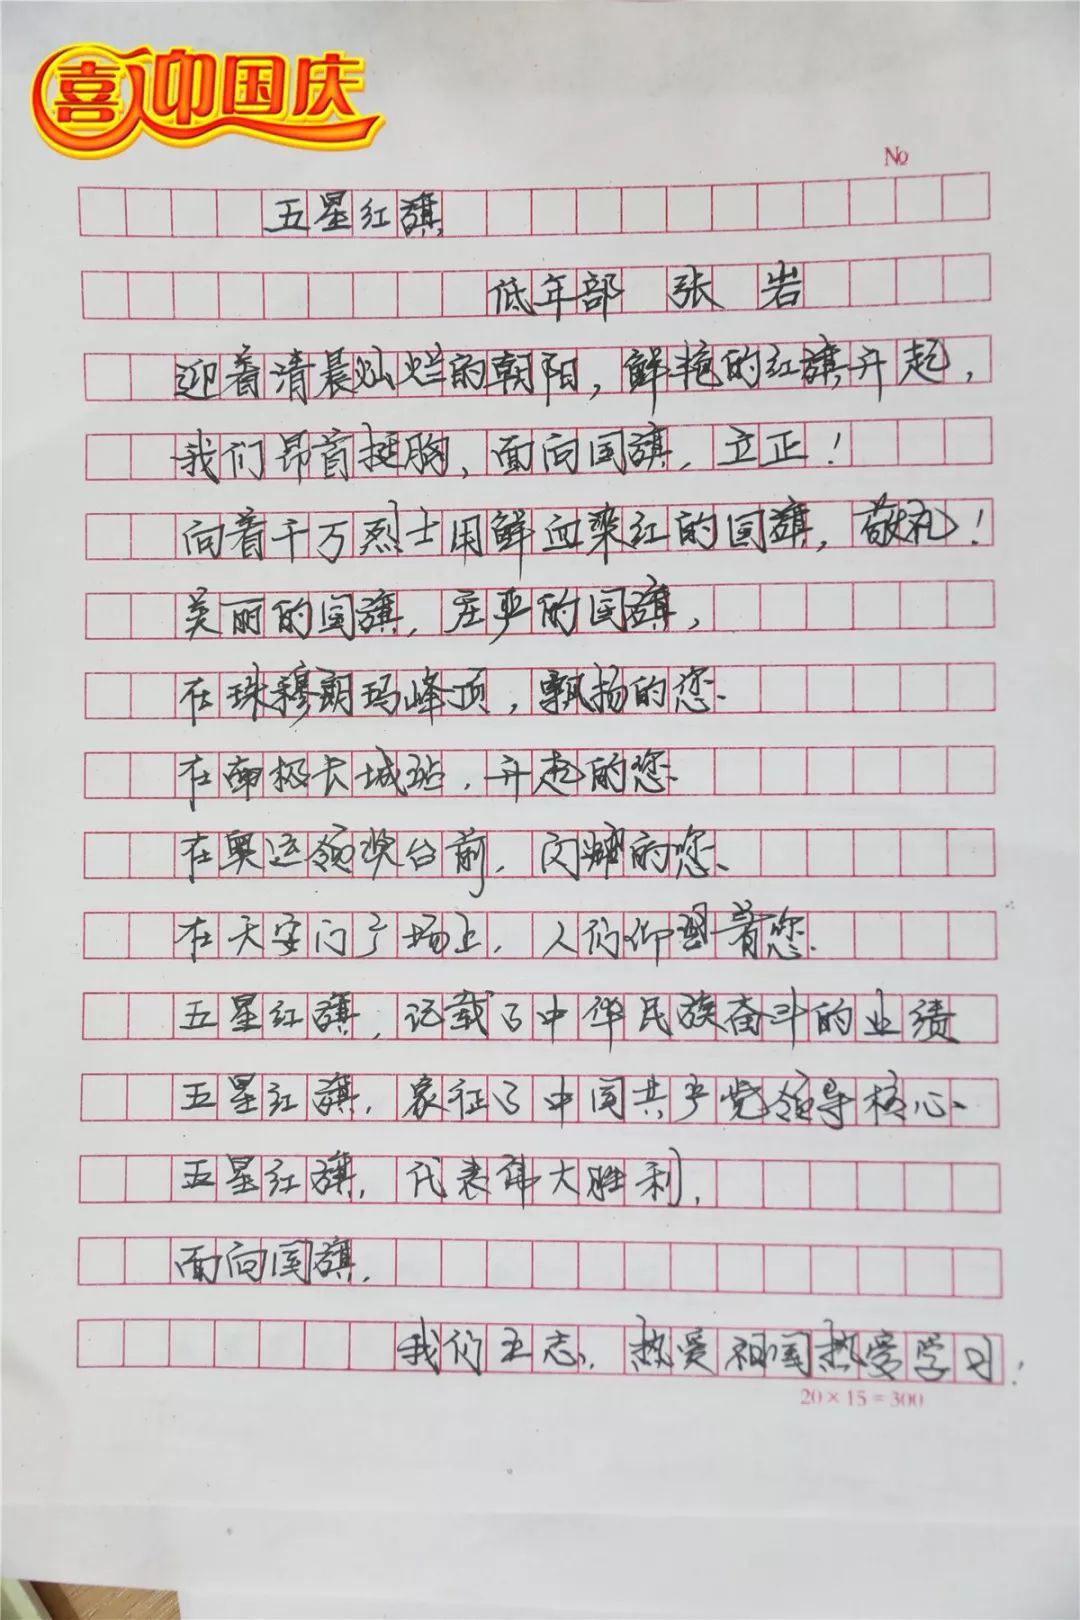 喜迎国庆
No
五星红旗
低年部 张 岩
迎着清晨灿烂的朝阳，鲜艳的红旗升起，
我们昂首挺胸，面向国旗，立正！
向着千万烈士用鲜血染红的国旗，敬礼！
美丽的国旗，庄严的国旗，
在珠穆朗玛峰顶，飘扬的您、
在南极长城站，升起的您、
在奥运领奖台前，闪耀的您、
在天安门广场上，人们仰望着您、
五星红旗，记载了中华民族奋斗的业绩
五星红旗，象征了中国共产党领导核心、
五星红旗，代表伟大胜利，
面向国旗，
我们立志、热爱祖国热爱学习！
20×15=300